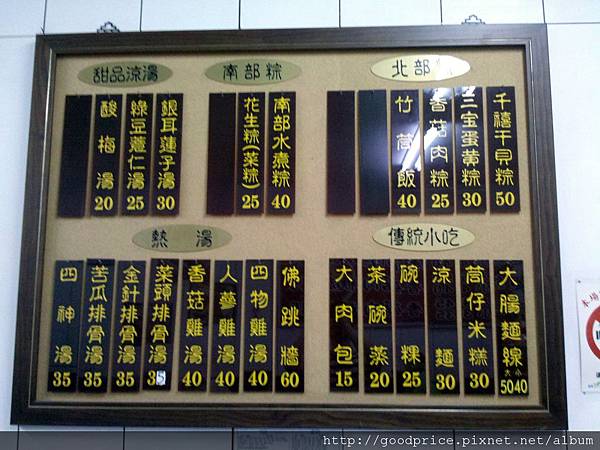 甜品涼湯
酸梅湯 20
綠豆薏仁湯 25
銀耳蓮子湯 30
南部粽
花生粽(菜粽) 25
南部水煮粽 40
北部
竹筒飯 40
香菇肉粽 25
三宝蛋黃粽 30
千禧干貝粽 50
熱湯
四神湯 35
苦瓜排骨湯 35
金針排骨湯 35
菜頭排骨湯 35
香菇雞湯 40
人參雞湯 40
四物雞湯 40
佛跳牆 60
傳統小吃
大肉包 15
茶碗蒸 20
碗粿 25
涼麵 30
筒仔米糕 30
大腸麵線 大50 小40
http://goodprice.pixnet.net/album